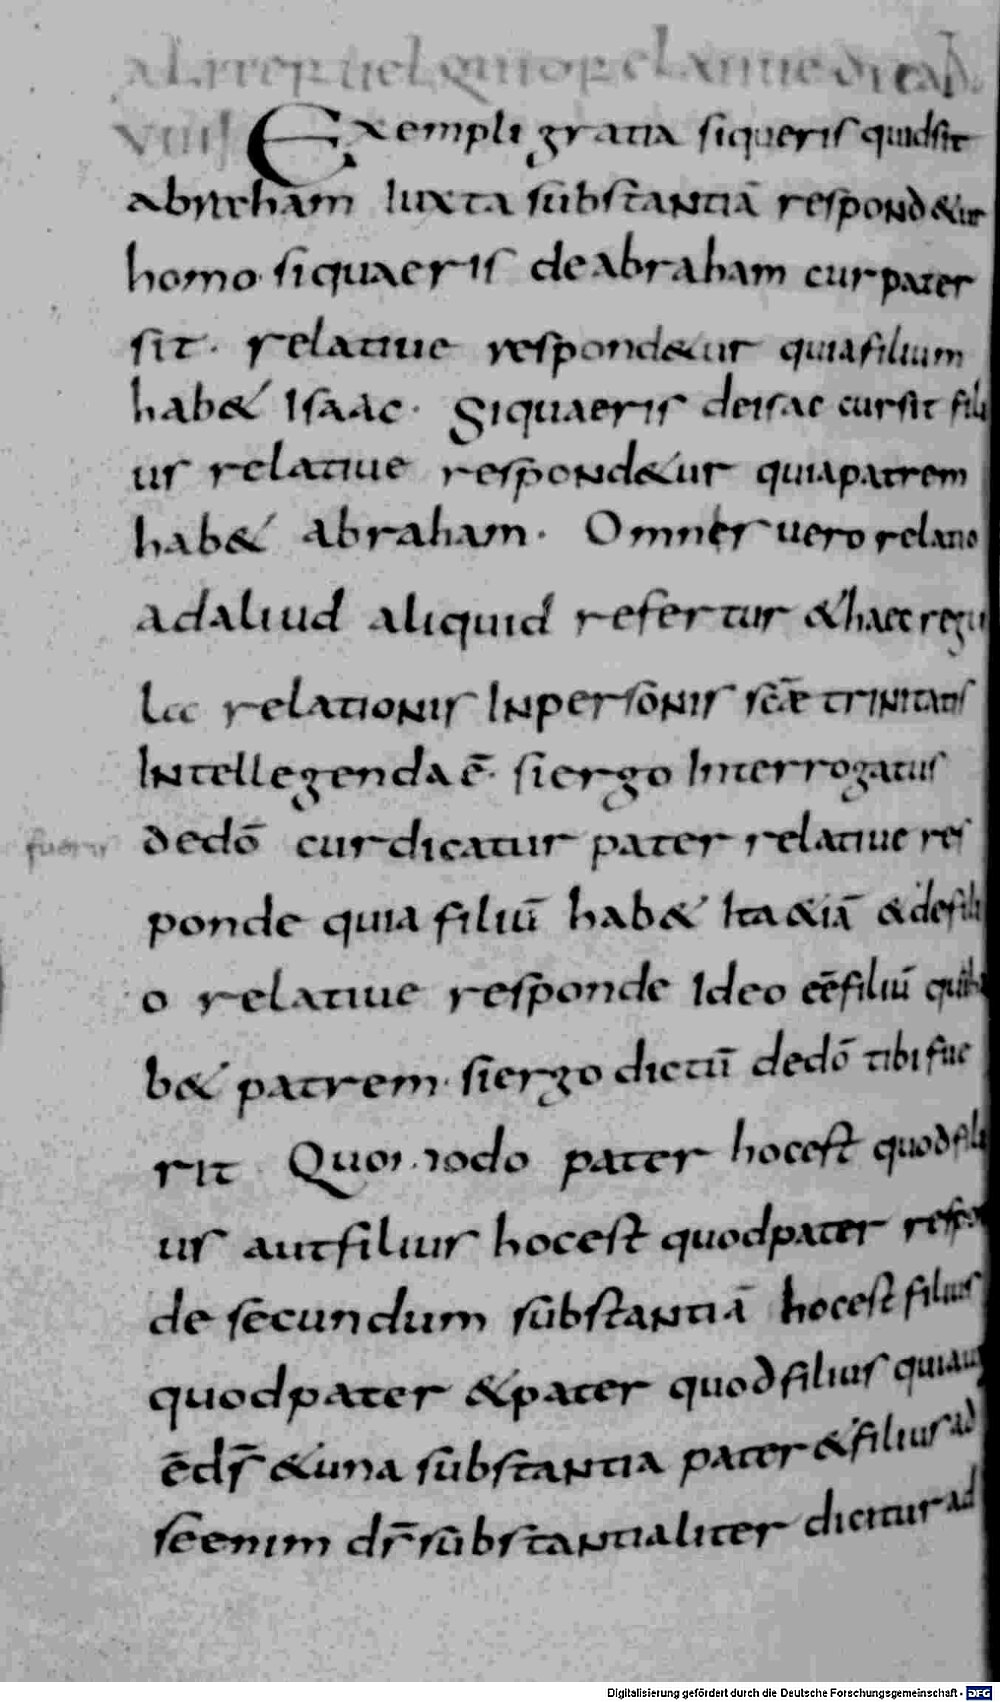 aliter uel quid relatiue dicat
Exempli gratia siqueris quidsit
abraham Iuxta substantiā respond&ur
homo· siquaeris deabraham curpater
sit· relatiue respond&ur quiafilium
hab& Isaac· Siquaeris deisac cursit fili
us relatiue respond&ur quiapatrem
hab& abraham· Omnes uero relatio
adaliud aliquid refertur &haec regu
la relationis Inpersonis scāe trinitatis
Intellegenda ē· siergo Interrogatus
fueris dedō curdicatur pater relatiue res
ponde quia filiū hab& Ita &iā &defili
o relatiue responde Ideo eē filiū quiha
b& patrem· siergo dictū dedō tibi fue
rit Quomodo pater hocest quodfili
us autfilius hocest quodpater respon
de secundum substantiā hocest filius
quodpater &pater quodfilius quia
ē ds̄ &una substantia pater &filius ad
seenim ds̄ substantialiter dicitur ad
Digitalisierung gefördert durch die Deutsche Forschungsgemeinschaft - DFG